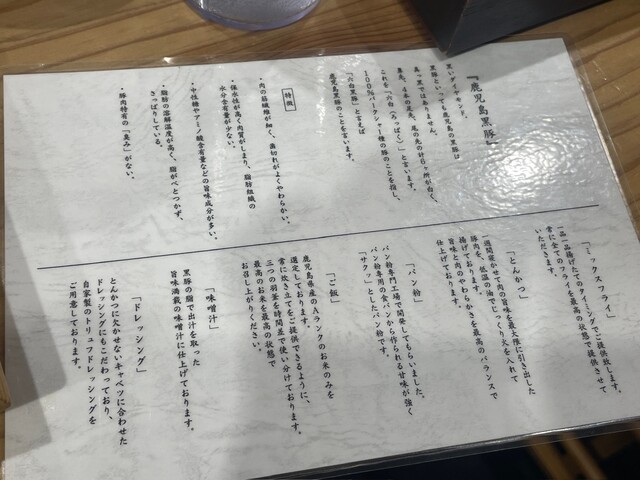 『鹿児島黒豚』
黒いダイヤモンド。
黒豚といっても鹿児島の黒豚は
真っ黒ではありません。
鼻先、4本の足先、尾の先の計6ヶ所が白く、
これを「六白（ろっぱく）」と言います。
100%バークシャー種の豚のことを指し、
「六白黒豚」と言えば
鹿児島黒豚のことを言います。
特徴
・肉の筋繊維が細く、歯切れがよくやわらかい。
・保水性が高く肉質がしまり、脂肪組織の
水分含有量が少ない。
・中性糖やアミノ酸含有量などの旨味成分が多い。
・脂肪の溶解温度が高く、脂がべとつかず、
さっぱりしている。
・豚肉特有の「臭み」がない。
「ミックスフライ」
一品一品揚げたてのタイミングでご提供致します。
常に全てのフライを最高の状態で提供させて
いただきます。
「とんかつ」
一週間寝かせて肉の旨味を最大限に引き出した
豚肉を、低温の油でじっくり火を入れて
揚げております。
旨味と肉のやわらかさを最高のバランスで
仕上げております。
「パン粉」
パン粉専門工場で開発してもらいました。
パン粉専用の食パンから作られる甘味が強く
「サクッ」としたパン粉です。
「ご飯」
鹿児島県産のAランクのお米のみを
選定しております。
常に炊き立てをご提供できるように、
三つの羽釜を時間差で使い分けております。
最高のお米を最高の状態で
お召し上がりください。
「味噌汁」
黒豚の脂で出汁を取った
旨味満載の味噌汁に仕上げております。
「ドレッシング」
とんかつに欠かせないキャベツに合わせた
ドレッシングにもこだわっており、
自家製のトリュフドレッシングを
ご用意しております。